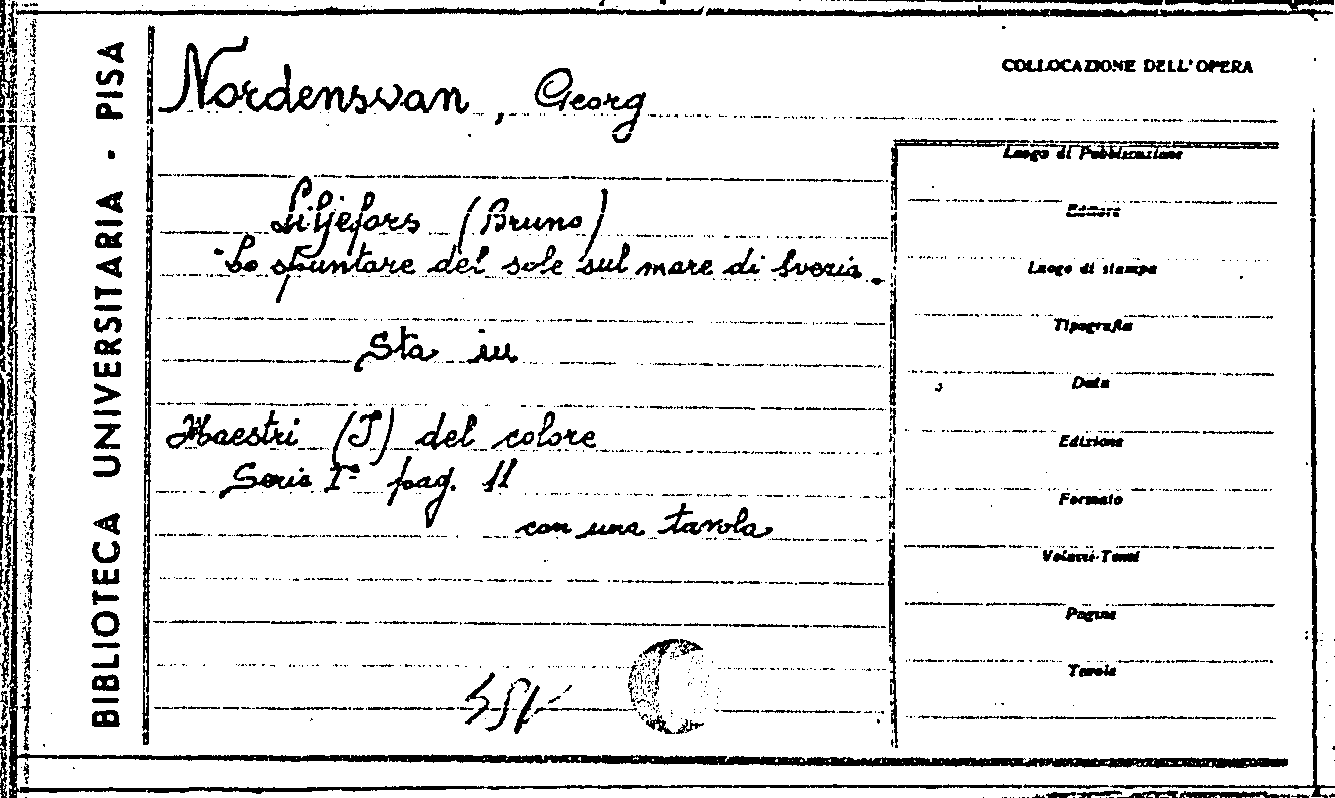 BIBLIOTECA UNIVERSITARIA - PISA
Nordensvan, Georg
COLLOCAZIONE DELL'OPERA
Liljefors (Bruno)
"Lo spuntare del sole sul mare di Svezia.
Sta in
Maestri (I) del colore
Serie Iª pag. 11
con una tavola
Luogo di Pubblicazione
Editore
Luogo di stampa
Tipografia
Data
Edizione
Formato
Volumi-Tomi
Pagine
Tavole